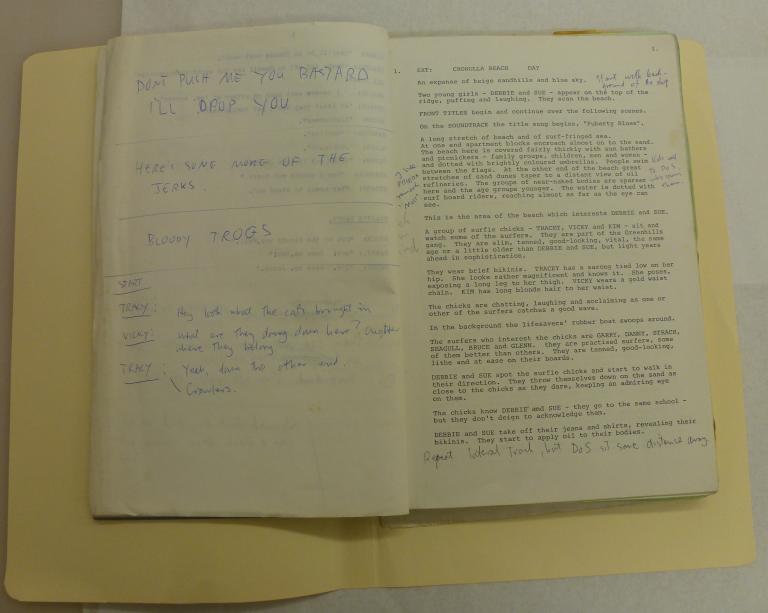 DON'T PUSH ME YOU BASTARD
I'LL DROP YOU
HERE'S SOME MORE OF THE
JERKS.
BLOODY TROGS
START
TRACY: Hey look what the cat's brought in
VICKY: What are they doing down here?
where they belong
TRACY: Yeah, down the other end.
Crawlers.
1.
1. EXT: CRONULLA BEACH DAY
An expanse of beige sandhills and blue sky.
Start with back-
ground of the
Two young girls - DEBBIE and SUE - appear on the top of the
ridge, puffing and laughing. They scan the beach.
FRONT TITLES begin and continue over the following scenes.
On the SOUNDTRACK the title song begins, "Puberty Blues".
A long stretch of beach and of surf-fringed sea.
At one end apartment blocks encroach almost on to the sand.
The beach here is covered fairly thickly with sun bathers
and picnickers - family groups, children, men and women -
and dotted with brightly coloured umbrellas. People swim
between the flags. At the other end of the beach great
stretches of sand dunes taper to a distant view of oil
refineries. The groups of near-naked bodies are sparser
here and the age groups younger. The water is dotted with
surf board riders, reaching almost as far as the eye can
see.
This is the area of the beach which interests DEBBIE and SUE.
A group of surfie chicks - TRACEY, VICKY and KIM - sit and
watch some of the surfers. They are part of the Greenhills
gang. They are slim, tanned, good-looking, vital, the same
age or a little older than DEBBIE and SUE, but light years
ahead in sophistication.
They wear brief bikinis. TRACEY has a sarong tied low on her
hip. She looks rather magnificent and knows it. She poses,
exposing a long leg to her thigh. VICKY wears a gold waist
chain. KIM has long blonde hair to her waist.
The chicks are chatting, laughing and exclaiming as one or
other of the surfers catches a good wave.
In the background the lifesavers' rubber boat swoops around.
The surfers who interest the chicks are GARRY, DANNY, STRACH,
SEAGULL, BRUCE and GLENN. they are practised surfers, some
of them better than others. They are tanned, good-looking,
lithe and at ease on their boards.
DEBBIE and SUE spot the surfie chicks and start to walk in
their direction. They throw themselves down on the sand as
close to the chicks as they dare, keeping an admiring eye
on them.
The chicks know DEBBIE and SUE - they go to the same school -
but they don't deign to acknowledge them.
DEBBIE and SUE take off their jeans and shirts, revealing their
bikinis. They start to apply oil to their bodies.
Repeat lateral track, but D&S sit some distance away